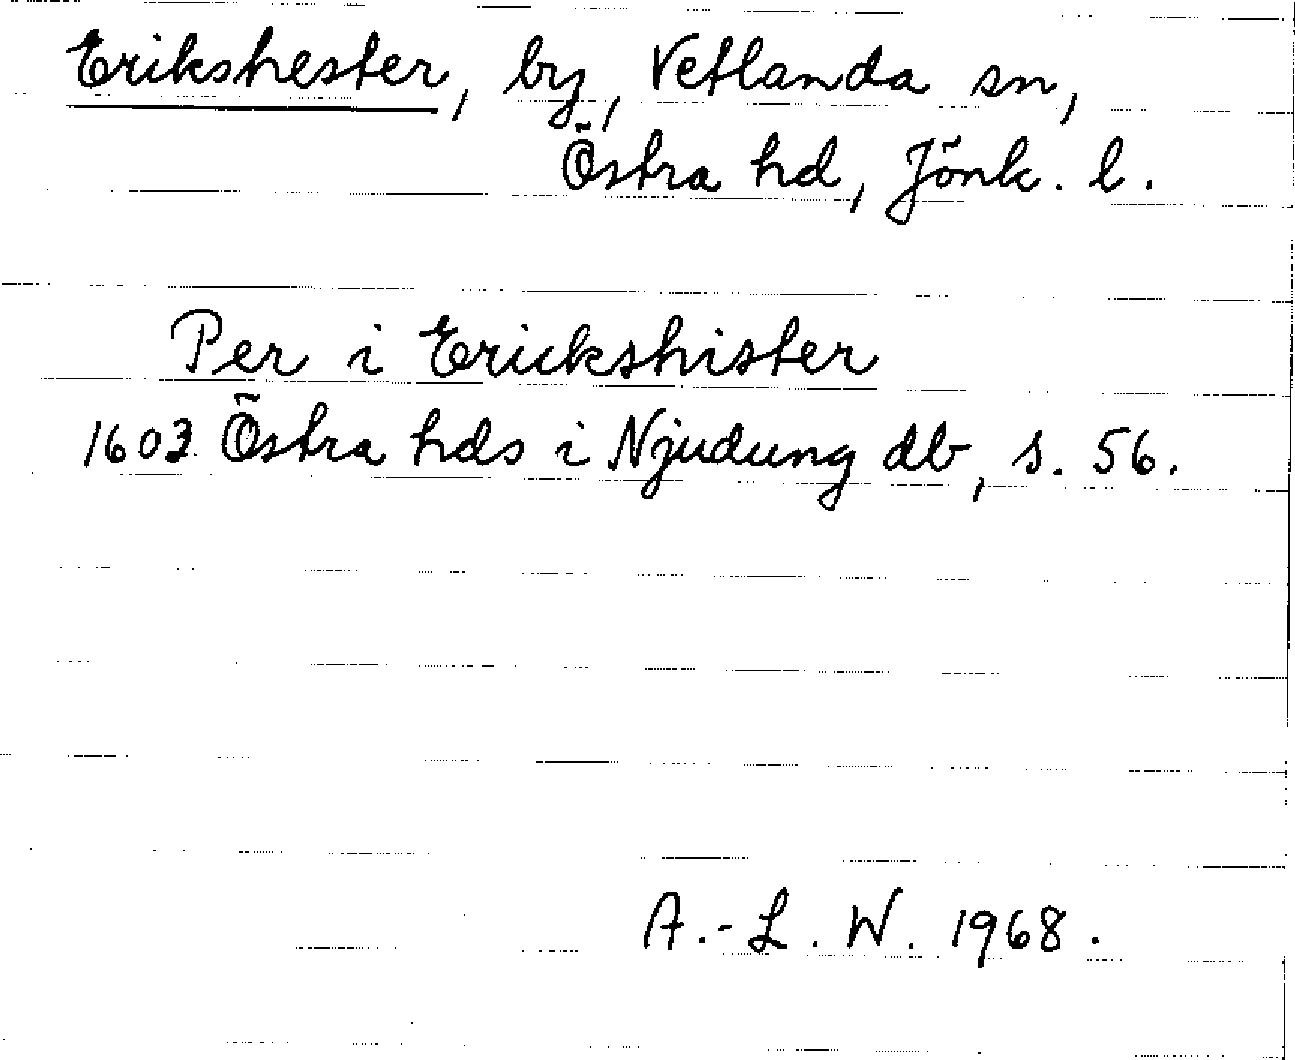 Erikshester, by, Vetlanda sn,
Östra hd, Jönk. l.
Per i Erickshister
1603 Östra hds i Njudung db, s. 56.
A.-L. W. 1968.